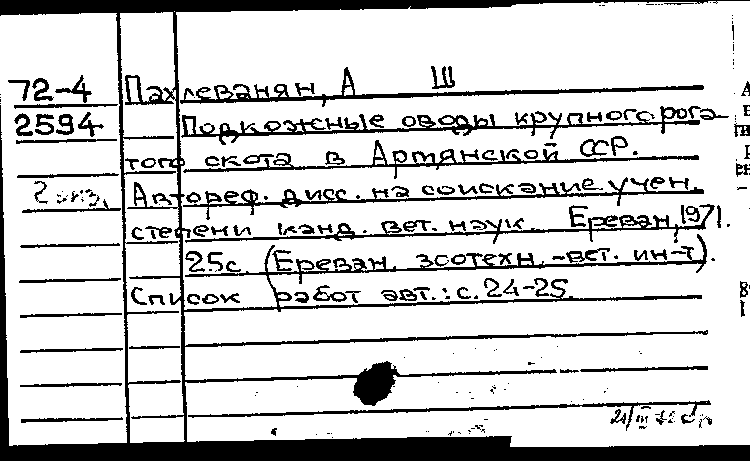 72-4 Пахлеванян, А Ш
2594 Подкожные оводы крупного рога-
того скота в Артянской ССР.
2 экз. Автореф. дисс. на соискание учен.
степени канд. вет. наук. Ереван, 1971.
25с. (Ереван. зоотехн.-вет. ин-т).
Список работ авт.: с. 24-25.